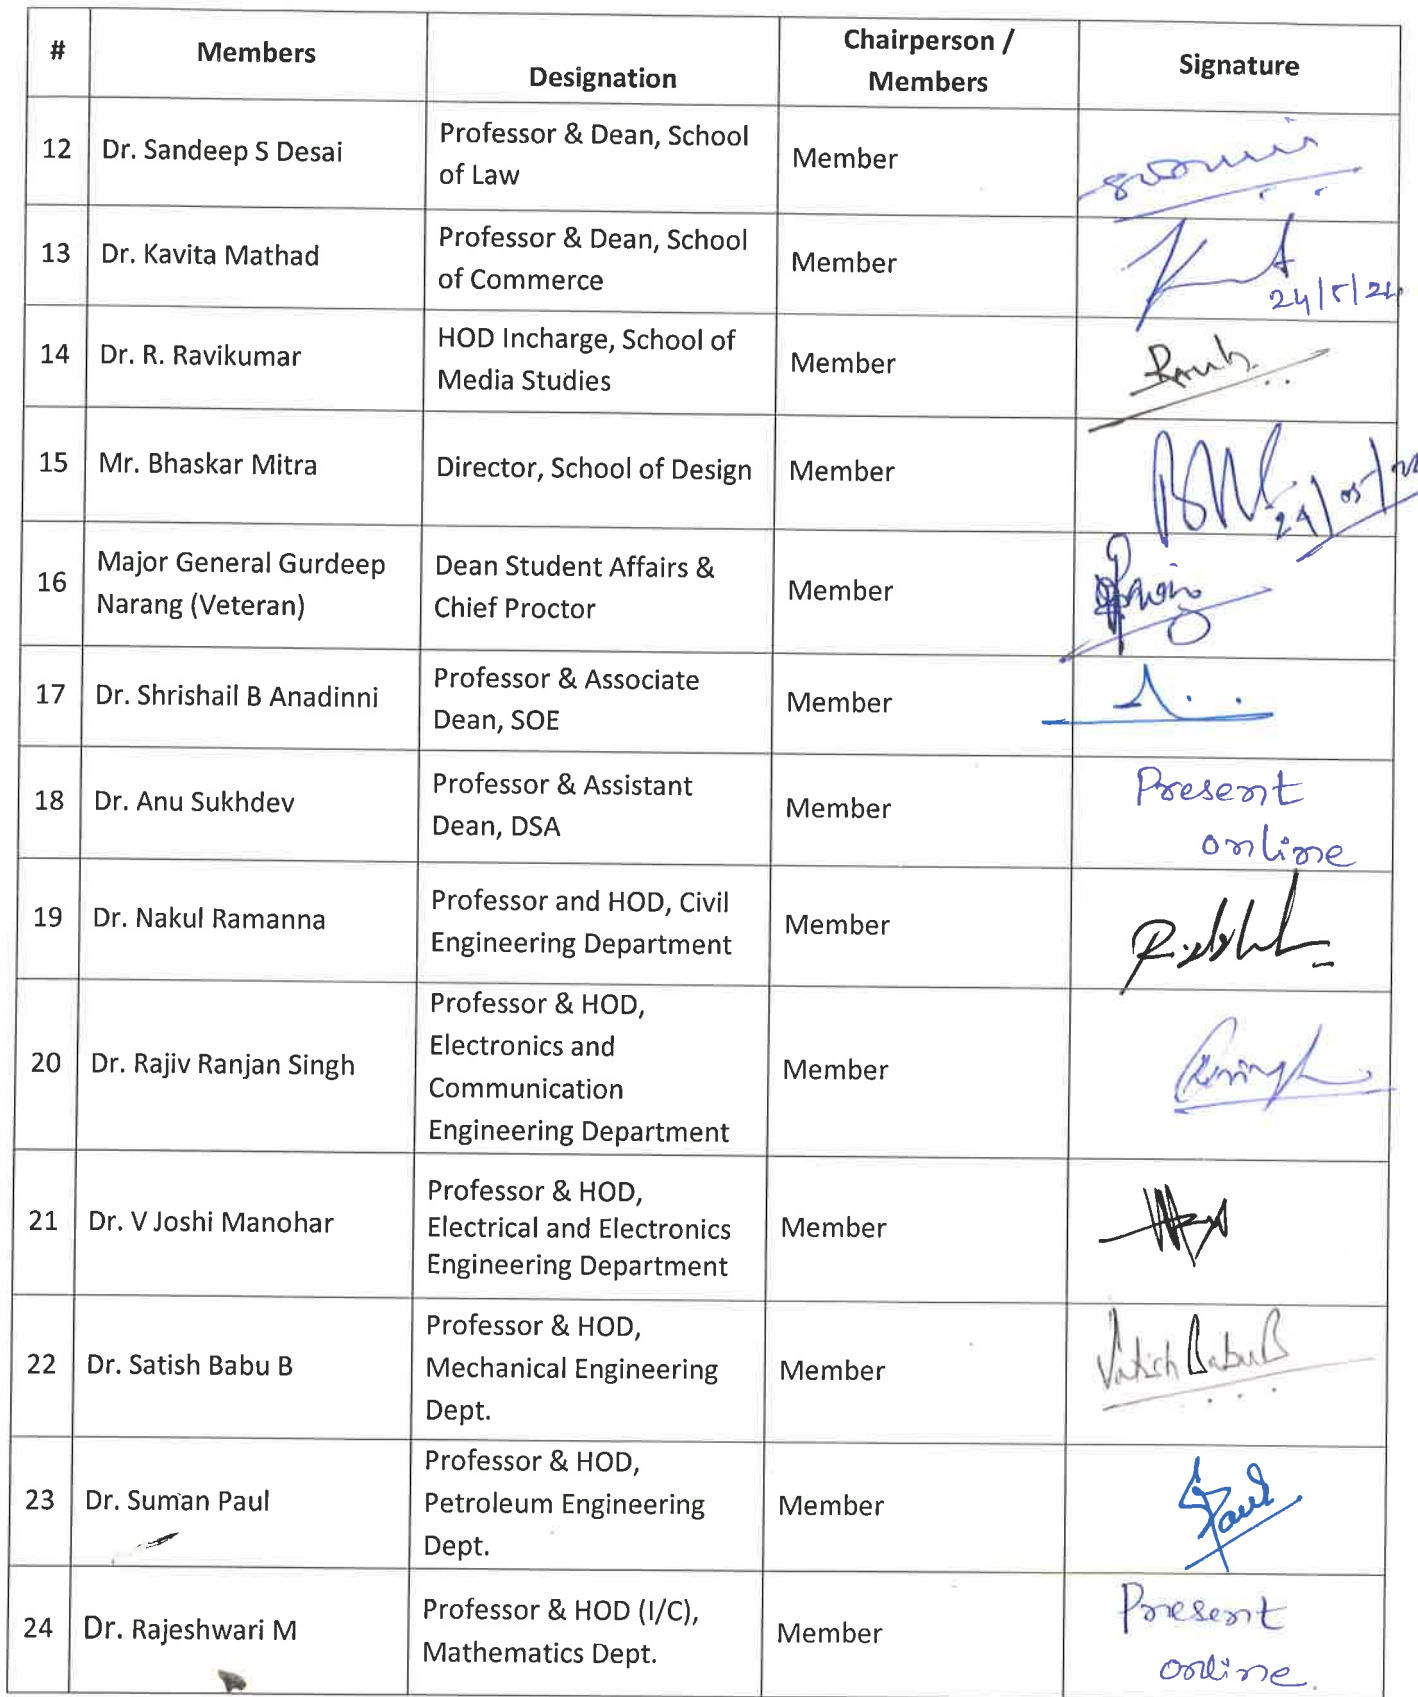 #
Members
Designation
Chairperson /
Members
Signature
12
Dr. Sandeep S Desai
Professor & Dean, School
of Law
Member
13
Dr. Kavita Mathad
Professor & Dean, School
of Commerce
Member
24/5/24
14
Dr. R. Ravikumar
HOD Incharge, School of
Media Studies
Member
15
Mr. Bhaskar Mitra
Director, School of Design
Member
16
Major General Gurdeep
Narang (Veteran)
Dean Student Affairs &
Chief Proctor
Member
17
Dr. Shrishail B Anadinni
Professor & Associate
Dean, SOE
Member
18
Dr. Anu Sukhdev
Professor & Assistant
Dean, DSA
Member
Present
online
19
Dr. Nakul Ramanna
Professor and HOD, Civil
Engineering Department
Member
20
Dr. Rajiv Ranjan Singh
Professor & HOD,
Electronics and
Communication
Engineering Department
Member
21
Dr. V Joshi Manohar
Professor & HOD,
Electrical and Electronics
Engineering Department
Member
22
Dr. Satish Babu B
Professor & HOD,
Mechanical Engineering
Dept.
Member
Satish Babu B
23
Dr. Suman Paul
Professor & HOD,
Petroleum Engineering
Dept.
Member
SPaul
24
Dr. Rajeshwari M
Professor & HOD (I/C),
Mathematics Dept.
Member
Present
online.